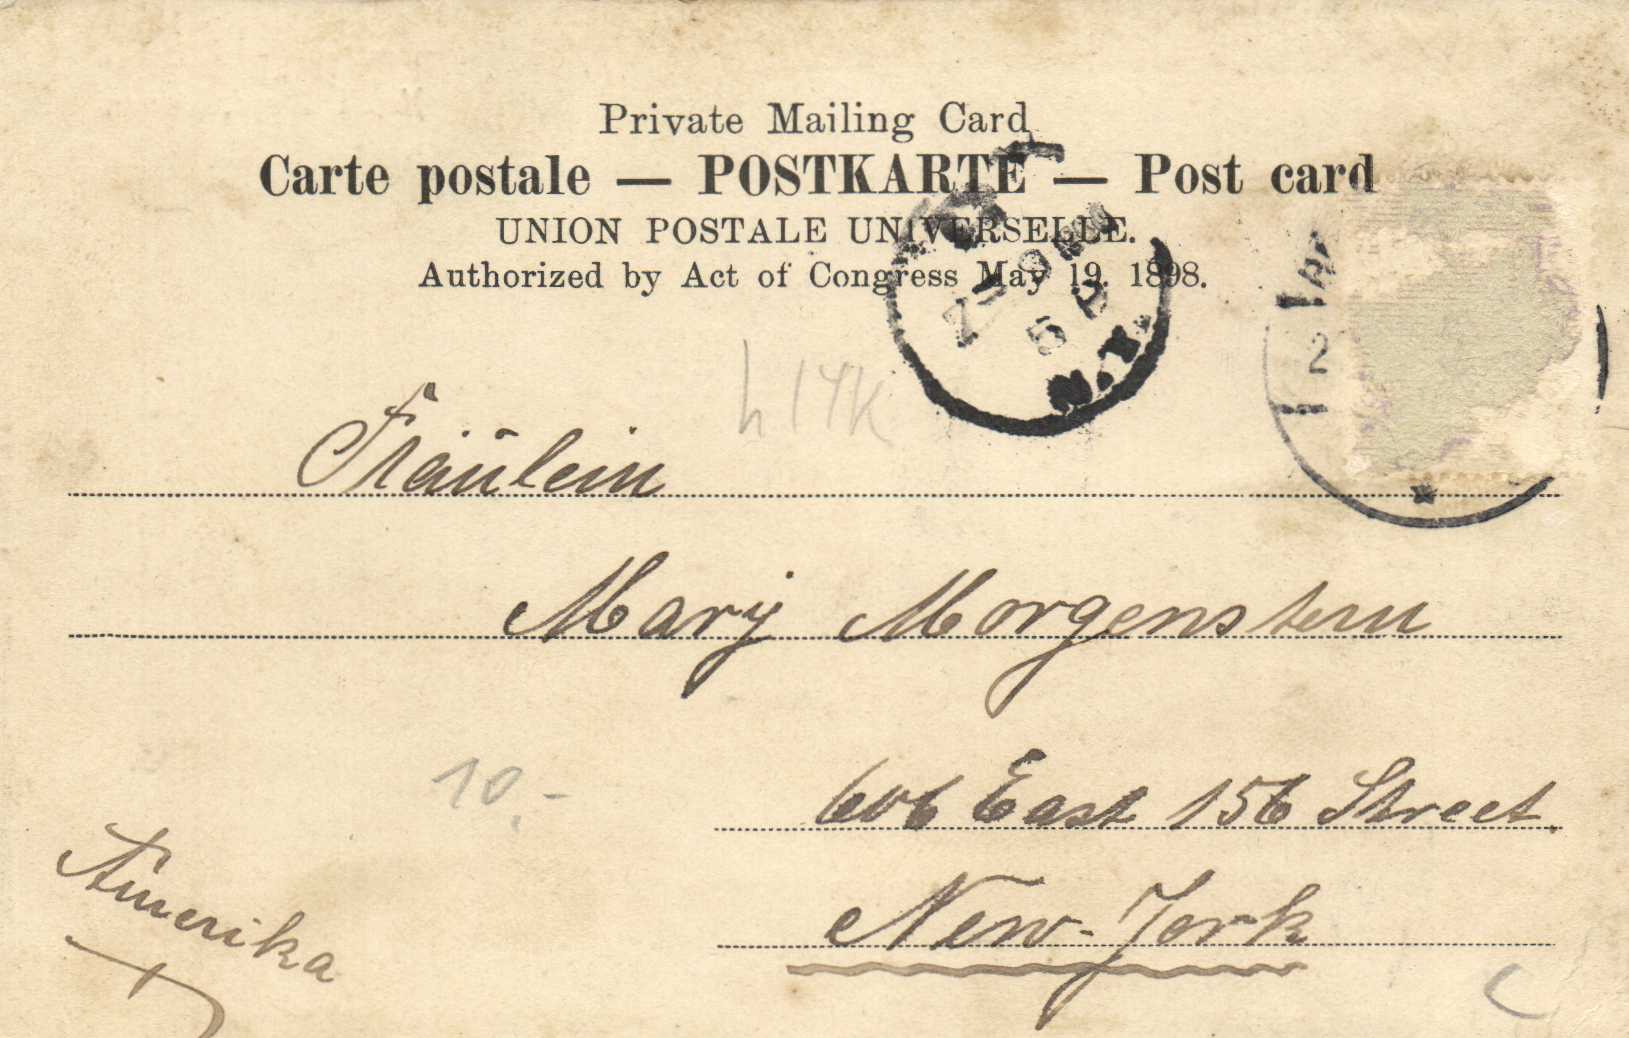 Private Mailing Card
Carte postale — POSTKARTE — Post card
UNION POSTALE UNIVERSELLE.
Authorized by Act of Congress May 19. 1898.
N.Y.
2
Fräulein
Mary Morgenstern
10.-
606 East 156 Street.
New-York
Amerika